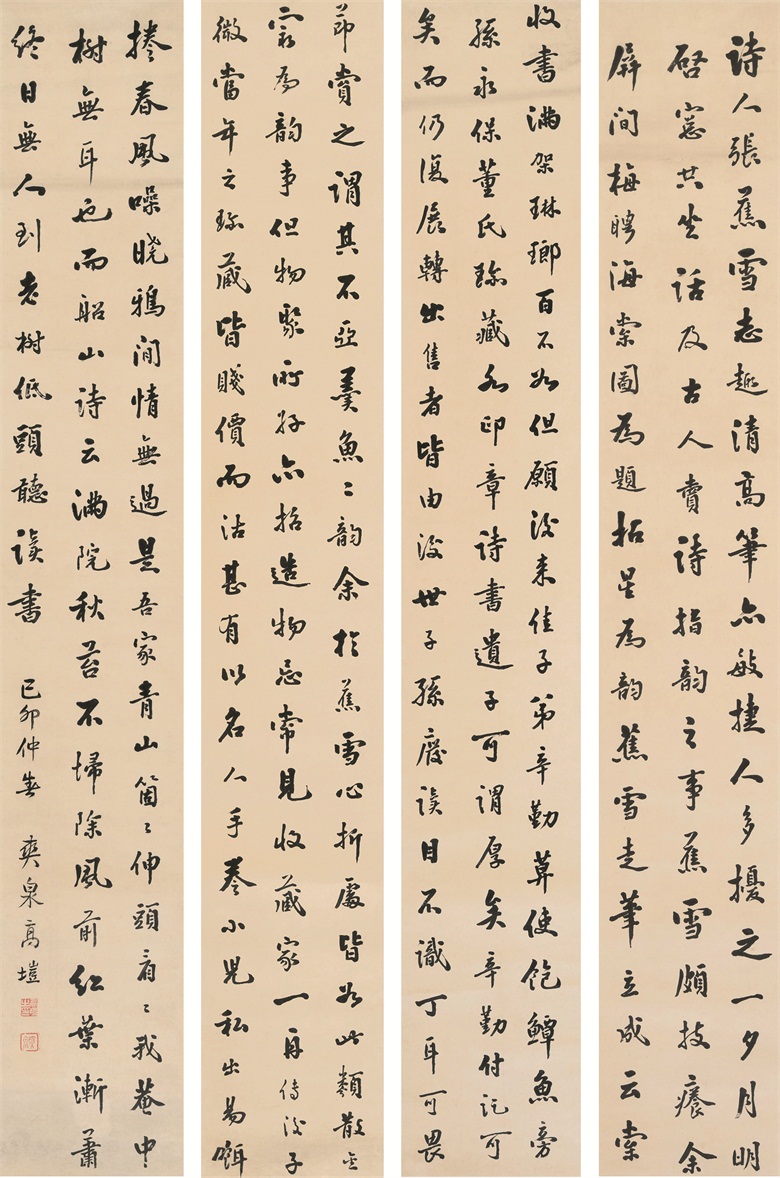 詩人張蕉雪志趣清高筆亦敏捷人多擾之一夕月明
啓窓共坐話及古人賣詩指韻之事蕉雪頗技癢余
屏間梅聘海棠圖為題拈星為韻蕉雪走筆立成云棠
收書滿架琳瑯百不如但願後来佳子弟辛勤莫使飽蟫魚旁
孫永保董氏珍藏勿印章詩書遺子可謂厚矣辛勤付託可
矣而仍復展轉出售者皆由後世子孫廢讀目不識丁耳可畏
節賞之謂其不亞羹魚〻韻余於蕉雪心折處皆如此類散金
寫為韻事但物聚所好亦招造物忌常見收藏家一再傳後子
微當年之珍藏皆賤價而沽甚有以名人手卷小兒私出易餌
捲春風噪晓鴉閒情無過是吾家青山箇〻伸頭看〻我菴中
樹無耳也而船山詩云滿院秋苔不掃除風前紅葉漸蕭
終日無人到老樹低頭聽讀書
己卯仲春 爽泉高塏